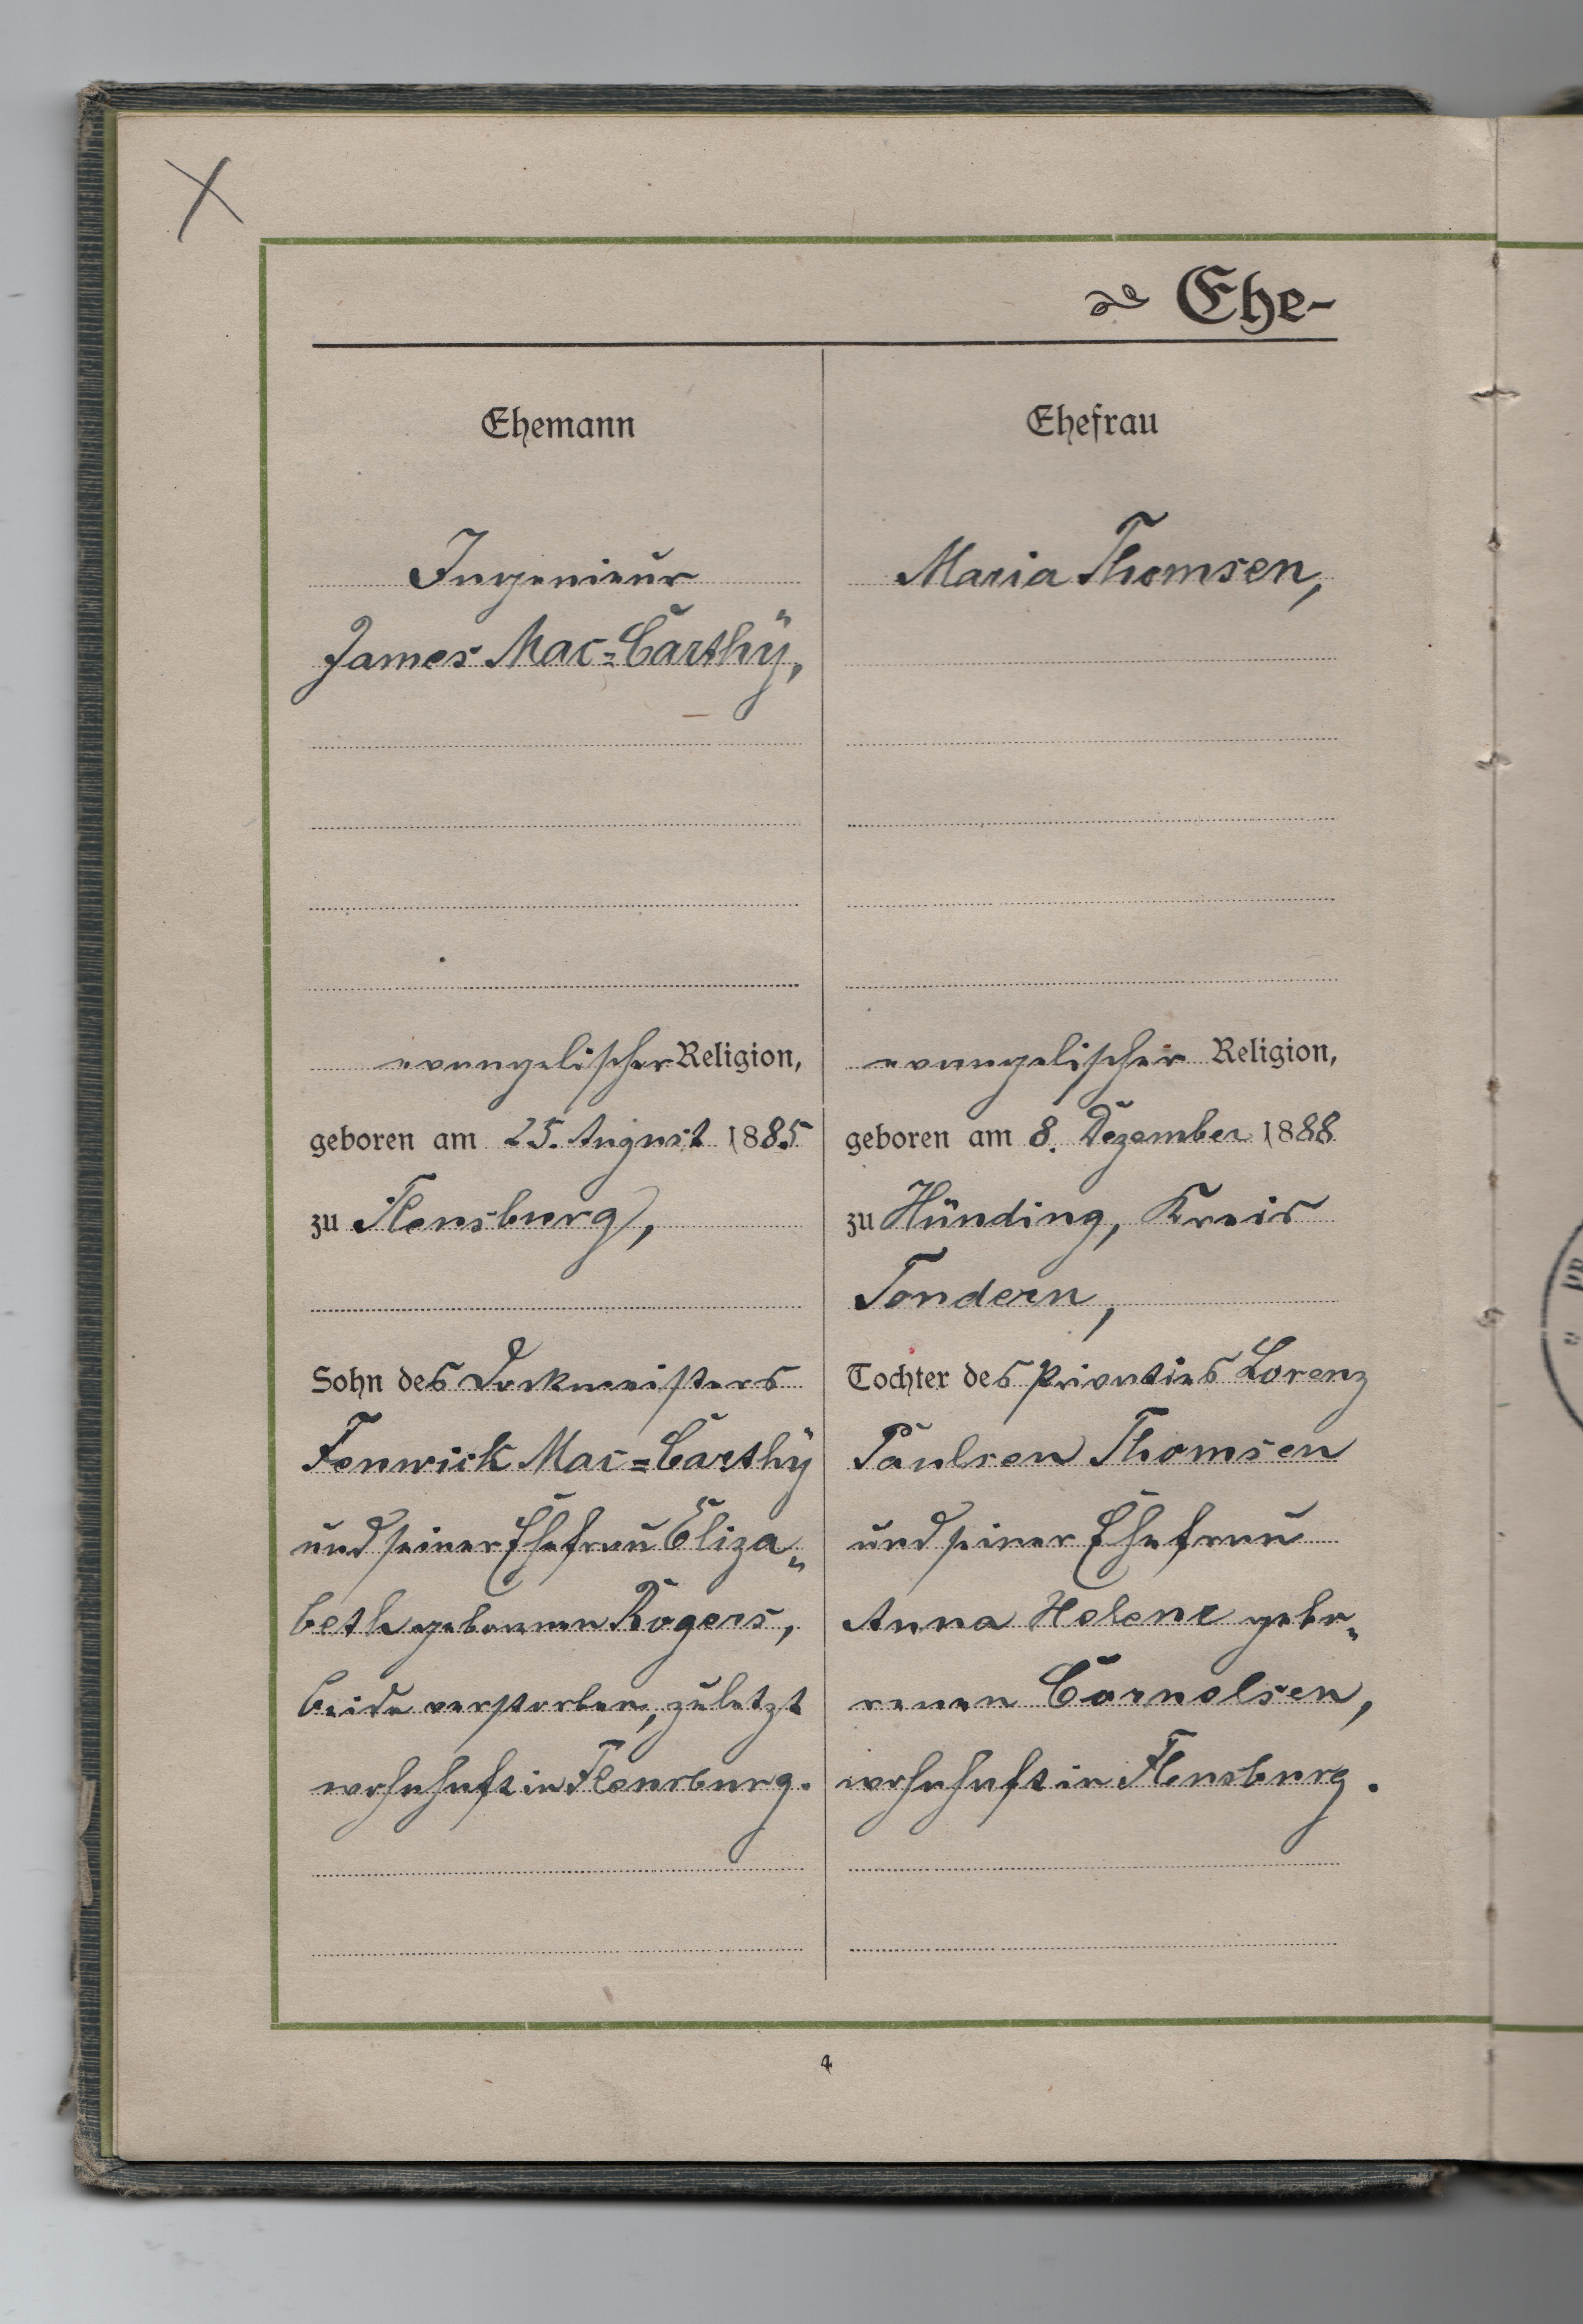 Ehe-
Ehemann
Ingenieur
James Mac=Carthÿ,
evangelischer Religion,
geboren am 25. August 1885
zu Flensburg,
Sohn des Dockmeisters
Fenwick Mac=Carthÿ
und seiner Ehefrau Eliza„
beth geborenen Rogers,
beide verstorben, zuletzt
wohnhaft in Flensburg.
Ehefrau
Maria Thomsen,
evangelischer Religion,
geboren am 8. Dezember 1888
zu Hünding, Kreis
Tondern,
Tochter des Privatiers Lorenz
Paulsen Thomsen
und seiner Ehefrau
Anna Helene gebo„
renen Cornelsen,
wohnhaft in Flensburg.
4